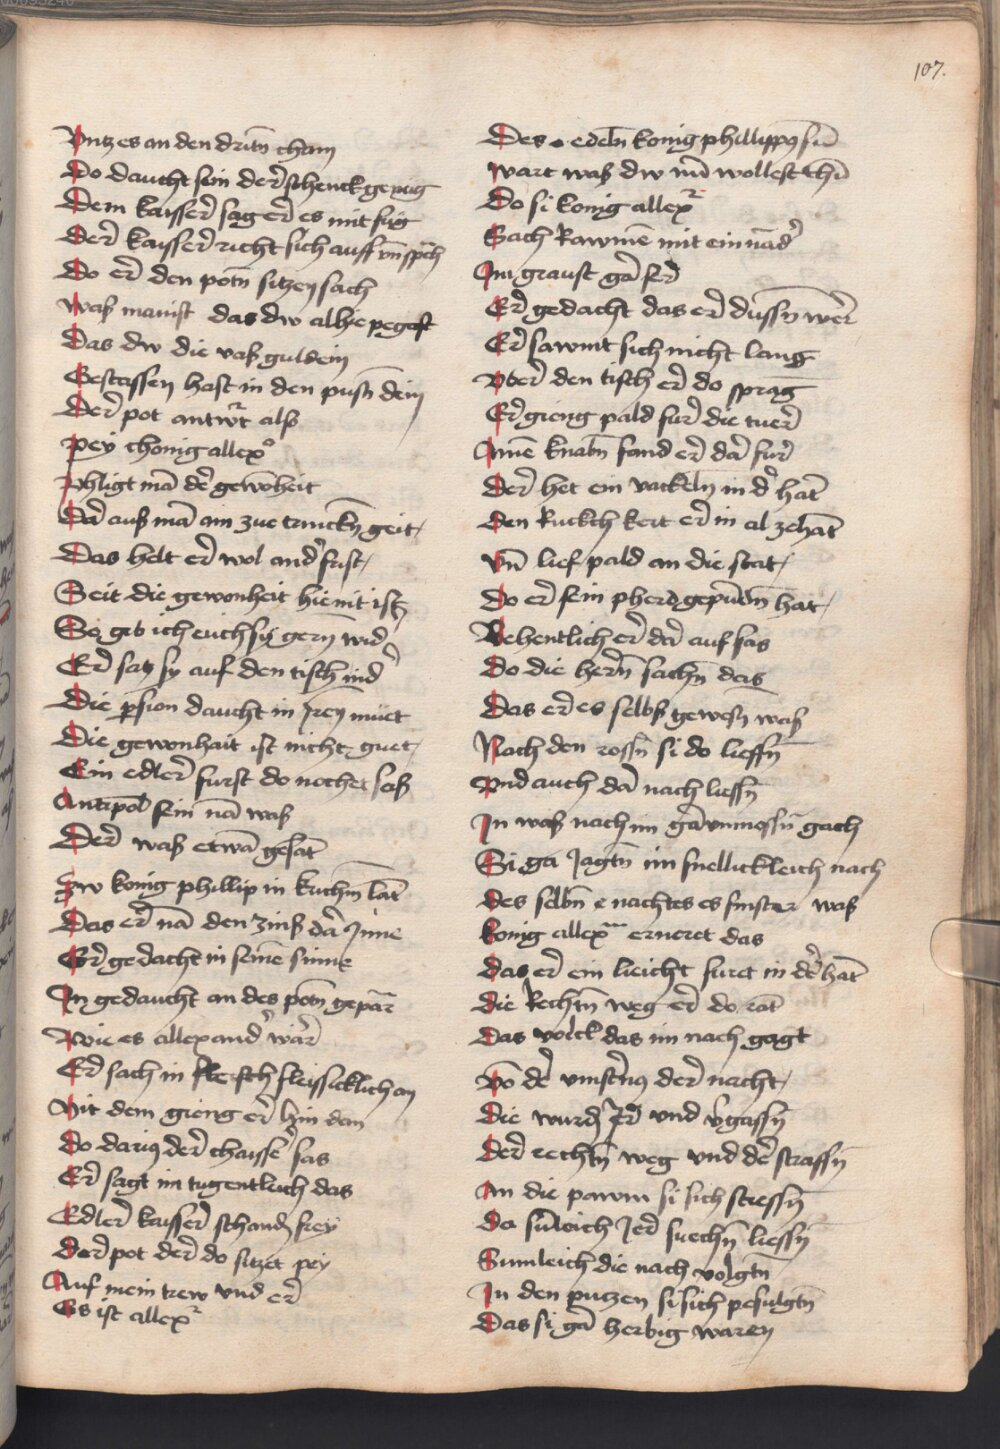 107.
Vntz es an den dritñ cham
Do daucht sein der̃ schenck gepug
Dem kaysser̃ sag er̃ es mit fug
Der̃ kaysser̃ richt sich auff vñ sp̃ch
Do er̃ den potñ sitzen sach
Waß mainst das dw alhie pegast
Das dw die vaß guldein
Gestassen hast in den pusñ dein
Der̃ pot antwꝛt alß
Pey chonig allexº
Phligt mã der̃ gewõheit
Dar̃ auß mã am zue trincкñ geit
Das helt er̃ wol and̃ frist
Seit die gewonheit hie nit ist
So gib ich euch sy gerñ wid̃
Er̃ satz sy auf den tisch nid̃
Die p̱sion daucht in Irem muet
Die gewonhait ist nicht guet
Ein edler̃ furst do nochet saß
Antipol sein nã waß
Der̃ waß etwã gesãt
Zw konig phillip in krichñ lãt
Das er̃ nã den zinß dar̃ Inne
Er̃ gedacht in seinẽ sinne
In gedaucht an des potñ gepãr
Wie es allexand̃ wãr
Er̃ sach in fleissicklich an
Mit dem gieng er̃ hin dan
Do darius der̃ chaisser̃ sas
Er̃ sagt im tugentleich das
Edler̃ kaisser̃ schandñ frey
Der pot der̃ do sitzet pey
Auf mein trew vnd er̃
Es ist allexʳ
Des edelñ konig phillippꝯ sũ
Wart waß dw nũ wollest thũ
Do si konig allexʳ
Sach Rawmẽ mit ein nãd̃
Im graust gar̃ ser̃
Er̃ gedacht das er̃ dussñ wer̃
Er̃ sawmt sich nicht lang
Vber̃ den tisch er̃ do sprãg
Er̃ gieng pald fur̃ die tuer̃
Ainẽ knabñ fand er̃ dar̃ fur̃
Der̃ het ein vackelñ in d̃ hãt
Den Ruckch kert er̃ in al zehãt
Vñ lief pald an die stat
Do er̃ sein pherd gepũdñ hat
Behentlich er̃ dar̃ auf sas
Do die herñ sachñ das
Das er̃ es selbß gewesñ waß
Nach den rossñ si do lieffñ
Vnd auch dar̃ nach liessñ
In waß nach im gar̃ vnmossñ gach
Si ga Jagtñ im snellickleich nach
Des selbñ e nachtes es finster waß
Konig allex erneret das
Das er̃ ein lieicht furet in der̃ hãt
Die Rechtñ weg er̃ do rãt
Das volck das im nach gagt
Võ der̃ vinsterñ der̃ nacht
Die wurdñ Ir̃ vnd v̾gassñ
Der̃ rechtñ weg vnd der̃ strassñ
An die pawm si sich stiessñ
Do sũleich Jer̃ suechñ liessñ
Sumleich die nach volgtñ
In den putzen si sich pesulgtñ
Das si gar̃ herbig waren